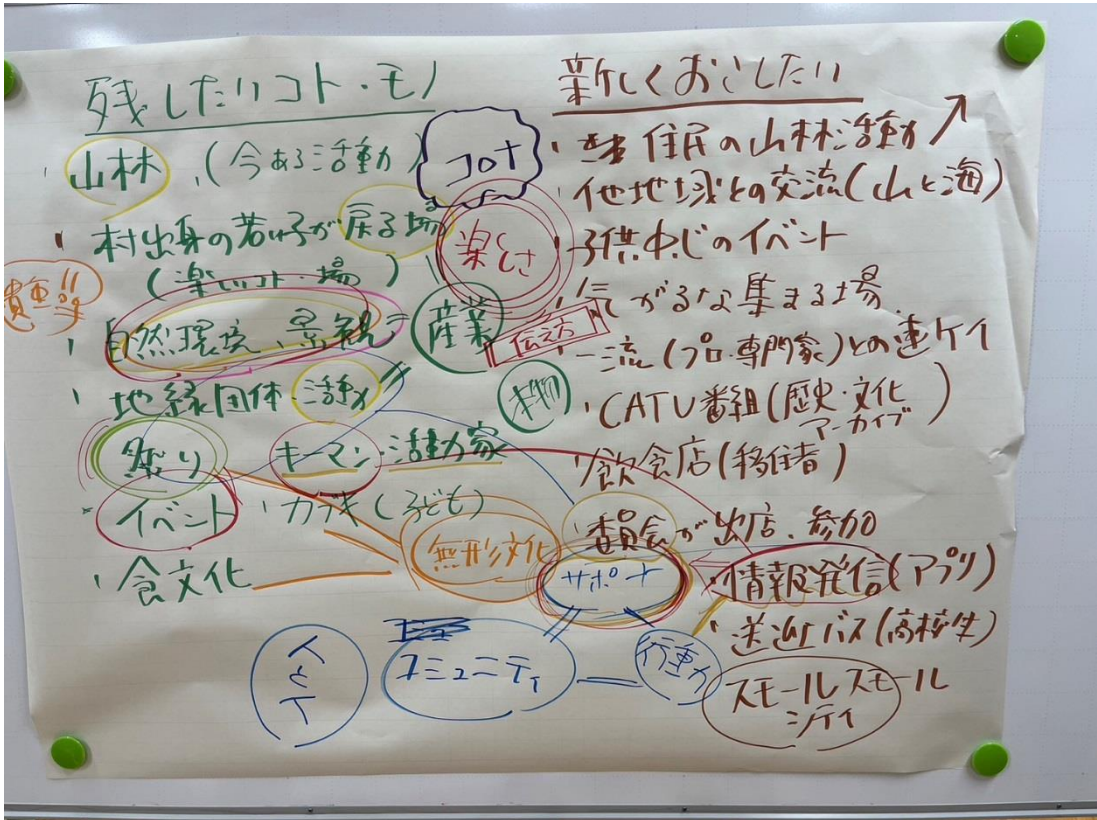 残したいコト・モノ
・山林、(今ある活動)
・村出身の若い子が戻る場
(楽しいコト・場)
貴重!!
・自然環境、景観
・地縁団体・活動
祭り
・キーマン・活動家
・イベント
・カブキ(子ども)
・食文化
コロナ
楽しさ
産業
伝え方
本物
無形文化
サポート
人と人
コミュニティ
行動力
新しくおこしたい
・住民の山林活動
・他地域との交流(山と海)
・子供中心のイベント
・気がるな集まる場
・一流(プロ・専門家)との連ケイ
・CATV番組(歴史・文化
アーカイブ)
・飲食店(移住者)
・委員会が出店、参加
・情報発信(アプリ)
・送迎バス(高校生)
スモールスモール
シティ